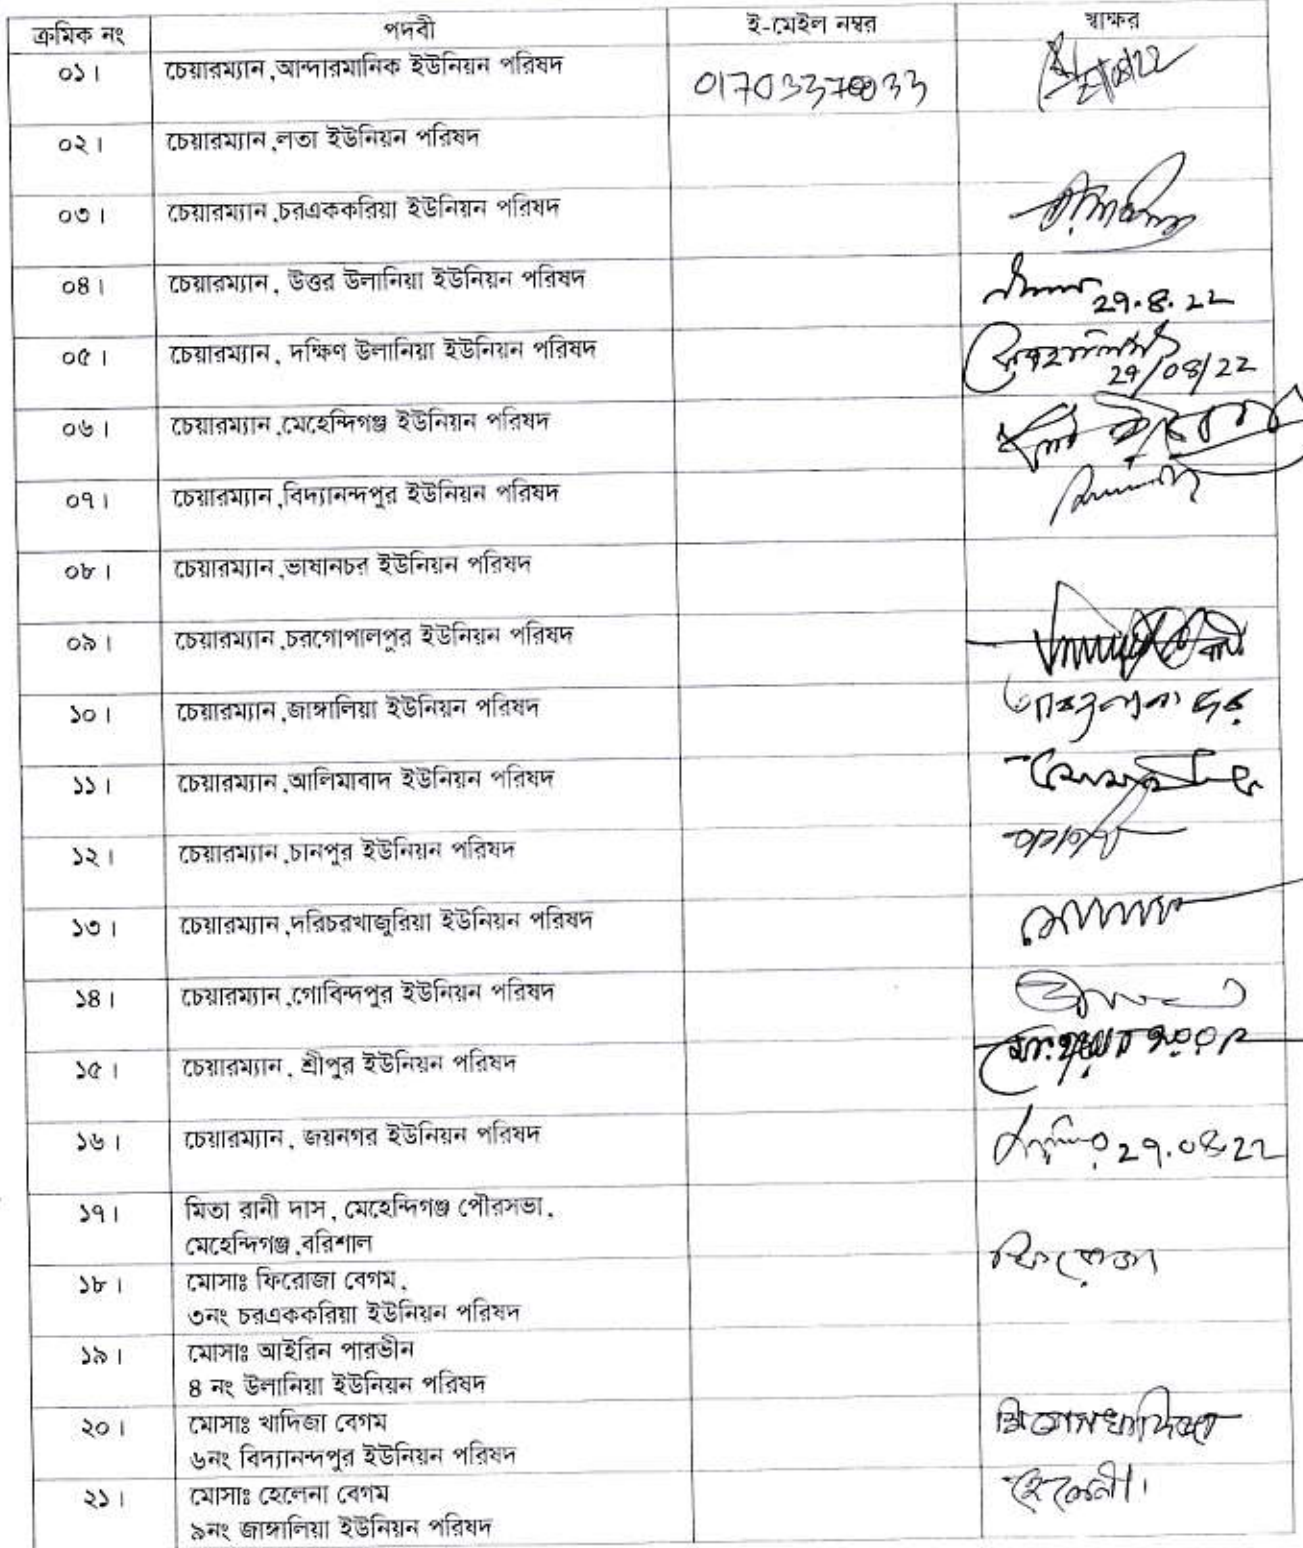 ক্রমিক নং পদবী ই-মেইল নম্বর স্বাক্ষর
০১। চেয়ারম্যান,আন্দারমানিক ইউনিয়ন পরিষদ
০২। চেয়ারম্যান,লতা ইউনিয়ন পরিষদ
০৩। চেয়ারম্যান,চরএককরিয়া ইউনিয়ন পরিষদ
০৪। চেয়ারম্যান, উত্তর উলানিয়া ইউনিয়ন পরিষদ
29.8.22
০৫। চেয়ারম্যান, দক্ষিণ উলানিয়া ইউনিয়ন পরিষদ
29/08/22
০৬। চেয়ারম্যান,মেহেন্দিগঞ্জ ইউনিয়ন পরিষদ
০৭। চেয়ারম্যান,বিদ্যানন্দপুর ইউনিয়ন পরিষদ
০৮। চেয়ারম্যান,ভাষানচর ইউনিয়ন পরিষদ
০৯। চেয়ারম্যান,চরগোপালপুর ইউনিয়ন পরিষদ
১০। চেয়ারম্যান,জাঙ্গালিয়া ইউনিয়ন পরিষদ
১১। চেয়ারম্যান,আলিমাবাদ ইউনিয়ন পরিষদ
১২। চেয়ারম্যান,চানপুর ইউনিয়ন পরিষদ
১৩। চেয়ারম্যান,দরিচরখাজুরিয়া ইউনিয়ন পরিষদ
১৪। চেয়ারম্যান,গোবিন্দপুর ইউনিয়ন পরিষদ
১৫। চেয়ারম্যান, শ্রীপুর ইউনিয়ন পরিষদ
১৬। চেয়ারম্যান, জয়নগর ইউনিয়ন পরিষদ 29.08.22
১৭। মিতা রানী দাস, মেহেন্দিগঞ্জ পৌরসভা,
মেহেন্দিগঞ্জ,বরিশাল
১৮। মোসাঃ ফিরোজা বেগম, ফিরোজা
৩নং চরএককরিয়া ইউনিয়ন পরিষদ
১৯। মোসাঃ আইরিন পারভীন
৪ নং উলানিয়া ইউনিয়ন পরিষদ
২০। মোসাঃ খাদিজা বেগম
৬নং বিদ্যানন্দপুর ইউনিয়ন পরিষদ
২১। মোসাঃ হেলেনা বেগম
৯নং জাঙ্গালিয়া ইউনিয়ন পরিষদ